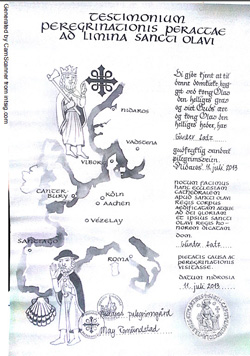 Generated by CamScanner from intsig.com
TESTIMONIUM
PEREGRINATIONIS PERACTAE
AD LIMINA SANCTI OLAVI
NIDAROS
VADSTENA
VIBORG
CANTERBURY
KÖLN
AACHEN
VÉZELAY
SANTIAGO
ROMA
Vi gjør kjent at til
denne domkirke bygget
over kong Olav
den helliges grav
og til Guds ære og
kong Olav
den helliges heder, har
Günter Lotz
gudfryktig vandret
pilegrimsveien.
Nidaros, 11. juli, 2013
NOTUM FACIMUS
HANC ECCLESIAM
CATHEDRALEM
APUD SANCTI OLAVI
REGIS CORPUS
AEDIFICATAM AEQUE
AD DEI GLORIAM
ET IPSIUS SANCTI
OLAVI REGIS HONOREM
DICATAM
DOM.
Günter Lotz
PIETATIS CAUSA AC
PEREGRINATIONIS
VISITASSE.
DATUM NIDROSIA
11. juli, 2013
Nidaros pilegrimsgård
May